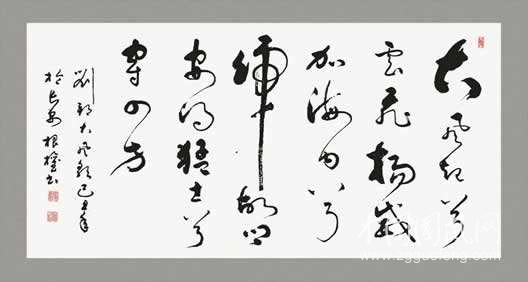 大風起兮
雲飛揚威
加海内兮
歸故鄉
安得猛士兮
守四方
劉邦大風歌己丑年
於長安根書